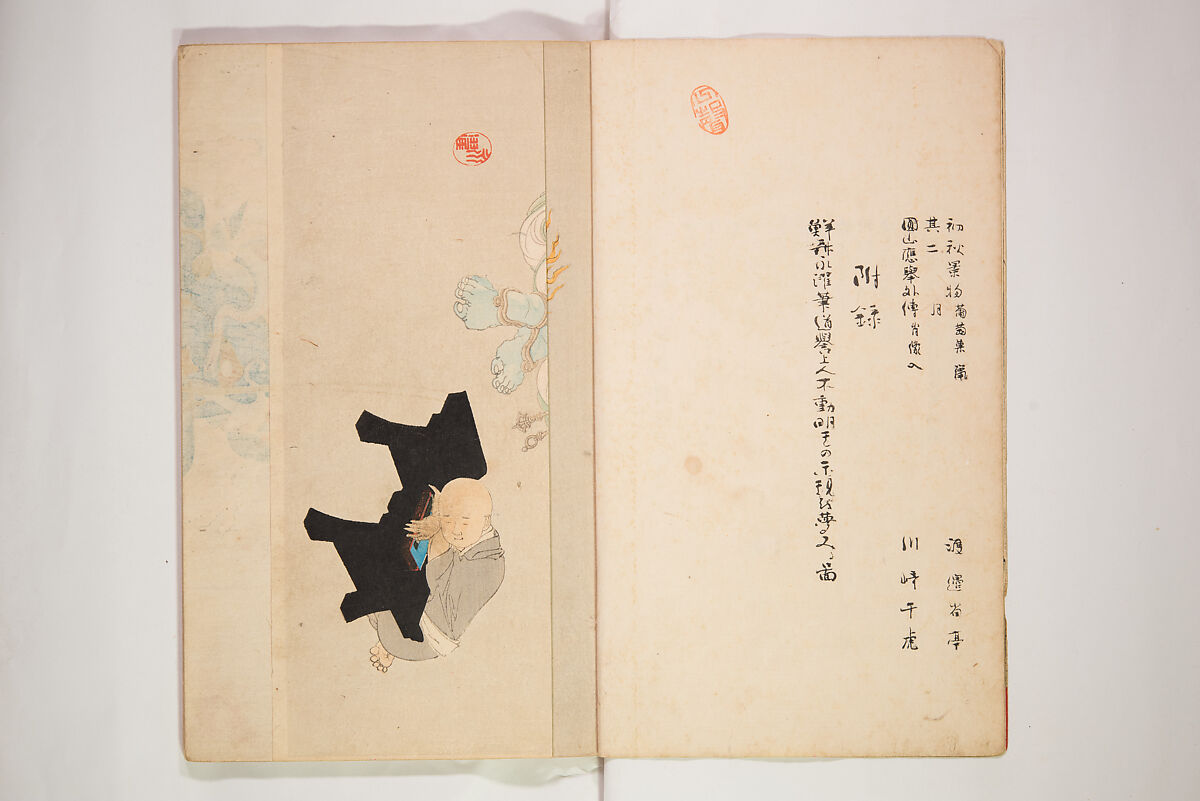 初秋景物 葡萄栗鼠 渡邊省亭
其二 月
圓山應擧外傳 肖像入 川﨑千虎
附録
鮮齋永濯筆道譽上人不動明王の示現を夢みる圖